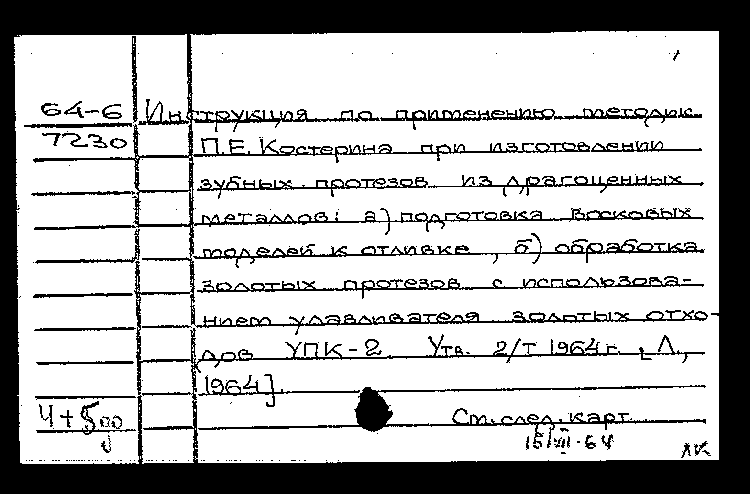 64-6 Инструкция по применению методик
7230 П.Е. Костерина при изготовлении
зубных протезов из драгоценных
металлов: а) подготовка восковых
моделей к отливке, б) обработка
золотых протезов с использова-
нием улавливателя золотых отхо-
дов УПК-2. Утв. 2/I 1964 г. [Л.,
1964].
Ч+5 См. след. карт.
15/VII-64
ЛК